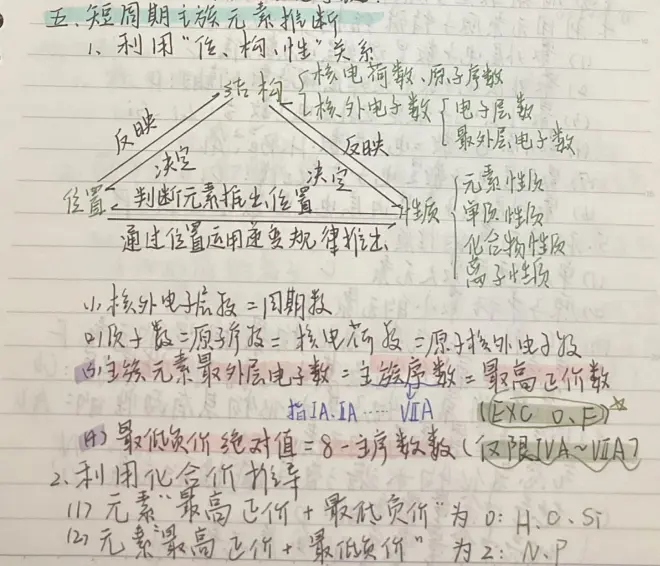 五、短周期主族元素推断
1、利用"位、构、性"关系
结构 核电荷数、原子序数
核外电子数 电子层数
最外层电子数
反映 决定 决定 反映
位置 判断元素推出位置 性质 元素性质
单质性质
通过位置运用递变规律推出 化合物性质
离子性质
(1)核外电子层数=周期数
(2)质子数=原子序数=核电荷数=原子核外电子数
(3)主族元素最外层电子数=主族序数=最高正价数
指IA.IIA……VIIA (EXC O、F)☆
(4)最低负价绝对值=8-主序数数(仅限IVA~VIIA)
2、利用化合价推导
(1)元素"最高正价+最低负价"为0:H、C、Si
(2)元素"最高正价+最低负价"为2:N、P